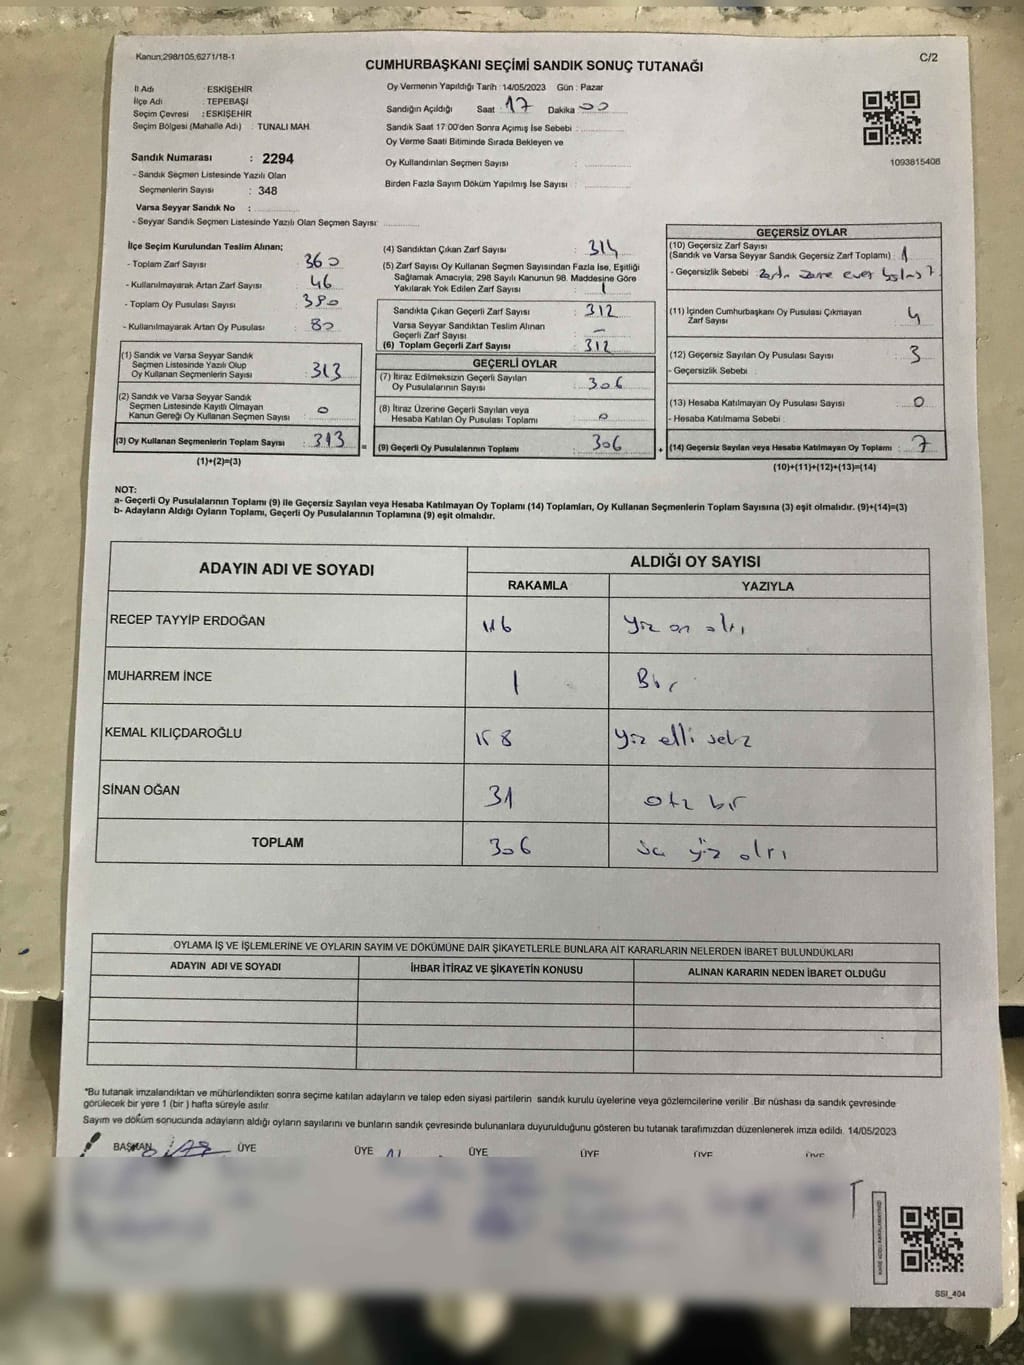 Kanun;298/105,6271/18-1
CUMHURBAŞKANI SEÇİMİ SANDIK SONUÇ TUTANAĞI
C/2
İl Adı : ESKİŞEHİR
İlçe Adı : TEPEBAŞI
Seçim Çevresi : ESKİŞEHİR
Seçim Bölgesi (Mahalle Adı) : TUNALI MAH.
Sandık Numarası : 2294
- Sandık Seçmen Listesinde Yazılı Olan
Seçmenlerin Sayısı : 348
Varsa Seyyar Sandık No :
- Seyyar Sandık Seçmen Listesinde Yazılı Olan Seçmen Sayısı:
Oy Vermenin Yapıldığı Tarih : 14/05/2023 Gün : Pazar
Sandığın Açıldığı Saat : 17 Dakika : 00
Sandık Saat 17:00'den Sonra Açımış İse Sebebi :
Oy Verme Saati Bitiminde Sırada Bekleyen ve
Oy Kullandırılan Seçmen Sayısı :
Birden Fazla Sayım Döküm Yapılmış İse Sayısı :
1093815406
İlçe Seçim Kurulundan Teslim Alınan;
- Toplam Zarf Sayısı : 360
- Kullanılmayarak Artan Zarf Sayısı : 46
- Toplam Oy Pusulası Sayısı : 380
- Kullanılmayarak Artan Oy Pusulası : 80
(1) Sandık ve Varsa Seyyar Sandık
Seçmen Listesinde Yazılı Olup
Oy Kullanan Seçmenlerin Sayısı : 313
(2) Sandık ve Varsa Seyyar Sandık
Seçmen Listesinde Kayıtlı Olmayan
Kanun Gereği Oy Kullanan Seçmen Sayısı : 0
(3) Oy Kullanan Seçmenlerin Toplam Sayısı : 313 =
(1)+(2)=(3)
(4) Sandıktan Çıkan Zarf Sayısı : 314
(5) Zarf Sayısı Oy Kullanan Seçmen Sayısından Fazla İse, Eşitliği
Sağlamak Amacıyla; 298 Sayılı Kanunun 98. Maddesine Göre
Yakılarak Yok Edilen Zarf Sayısı : 1
Sandıkta Çıkan Geçerli Zarf Sayısı : 312
Varsa Seyyar Sandıktan Teslim Alınan
Geçerli Zarf Sayısı : –
(6) Toplam Geçerli Zarf Sayısı : 312
GEÇERLİ OYLAR
(7) İtiraz Edilmeksizin Geçerli Sayılan
Oy Pusulalarının Sayısı : 306
(8) İtiraz Üzerine Geçerli Sayılan veya
Hesaba Katılan Oy Pusulası Toplamı : 0
(9) Geçerli Oy Pusulalarının Toplamı : 306 +
GEÇERSİZ OYLAR
(10) Geçersiz Zarf Sayısı
(Sandık ve Varsa Seyyar Sandık Geçersiz Zarf Toplamı) : 1
- Geçersizlik Sebebi :
(11) İçinden Cumhurbaşkanı Oy Pusulası Çıkmayan
Zarf Sayısı : 4
(12) Geçersiz Sayılan Oy Pusulası Sayısı : 3
- Geçersizlik Sebebi :
(13) Hesaba Katılmayan Oy Pusulası Sayısı : 0
- Hesaba Katılmama Sebebi :
(14) Geçersiz Sayılan veya Hesaba Katılmayan Oy Toplamı : 7
(10)+(11)+(12)+(13)=(14)
NOT:
a- Geçerli Oy Pusulalarının Toplamı (9) ile Geçersiz Sayılan veya Hesaba Katılmayan Oy Toplamı (14) Toplamları, Oy Kullanan Seçmenlerin Toplam Sayısına (3) eşit olmalıdır. (9)+(14)=(3)
b- Adayların Aldığı Oyların Toplamı, Geçerli Oy Pusulalarının Toplamına (9) eşit olmalıdır.
ADAYIN ADI VE SOYADI
ALDIĞI OY SAYISI
RAKAMLA YAZIYLA
RECEP TAYYİP ERDOĞAN 116 yüz on altı
MUHARREM İNCE 1 Bir
KEMAL KILIÇDAROĞLU 158 yüz elli sekiz
SİNAN OĞAN 31 otuz bir
TOPLAM 306 üç yüz altı
OYLAMA İŞ VE İŞLEMLERİNE VE OYLARIN SAYIM VE DÖKÜMÜNE DAİR ŞİKAYETLERLE BUNLARA AİT KARARLARIN NELERDEN İBARET BULUNDUKLARI
ADAYIN ADI VE SOYADI İHBAR İTİRAZ VE ŞİKAYETİN KONUSU ALINAN KARARIN NEDEN İBARET OLDUĞU
*Bu tutanak imzalandıktan ve mühürlendikten sonra seçime katılan adayların ve talep eden siyasi partilerin sandık kurulu üyelerine veya gözlemcilerine verilir .Bir nüshası da sandık çevresinde
görülecek bir yere 1 (bir ) hafta süreyle asılır.
Sayım ve döküm sonucunda adayların aldığı oyların sayılarını ve bunların sandık çevresinde bulunanlara duyurulduğunu gösteren bu tutanak tarafımızdan düzenlenerek imza edildi. 14/05/2023
BAŞKAN ÜYE ÜYE ÜYE ÜYE ÜYE ÜYE
SSI_404